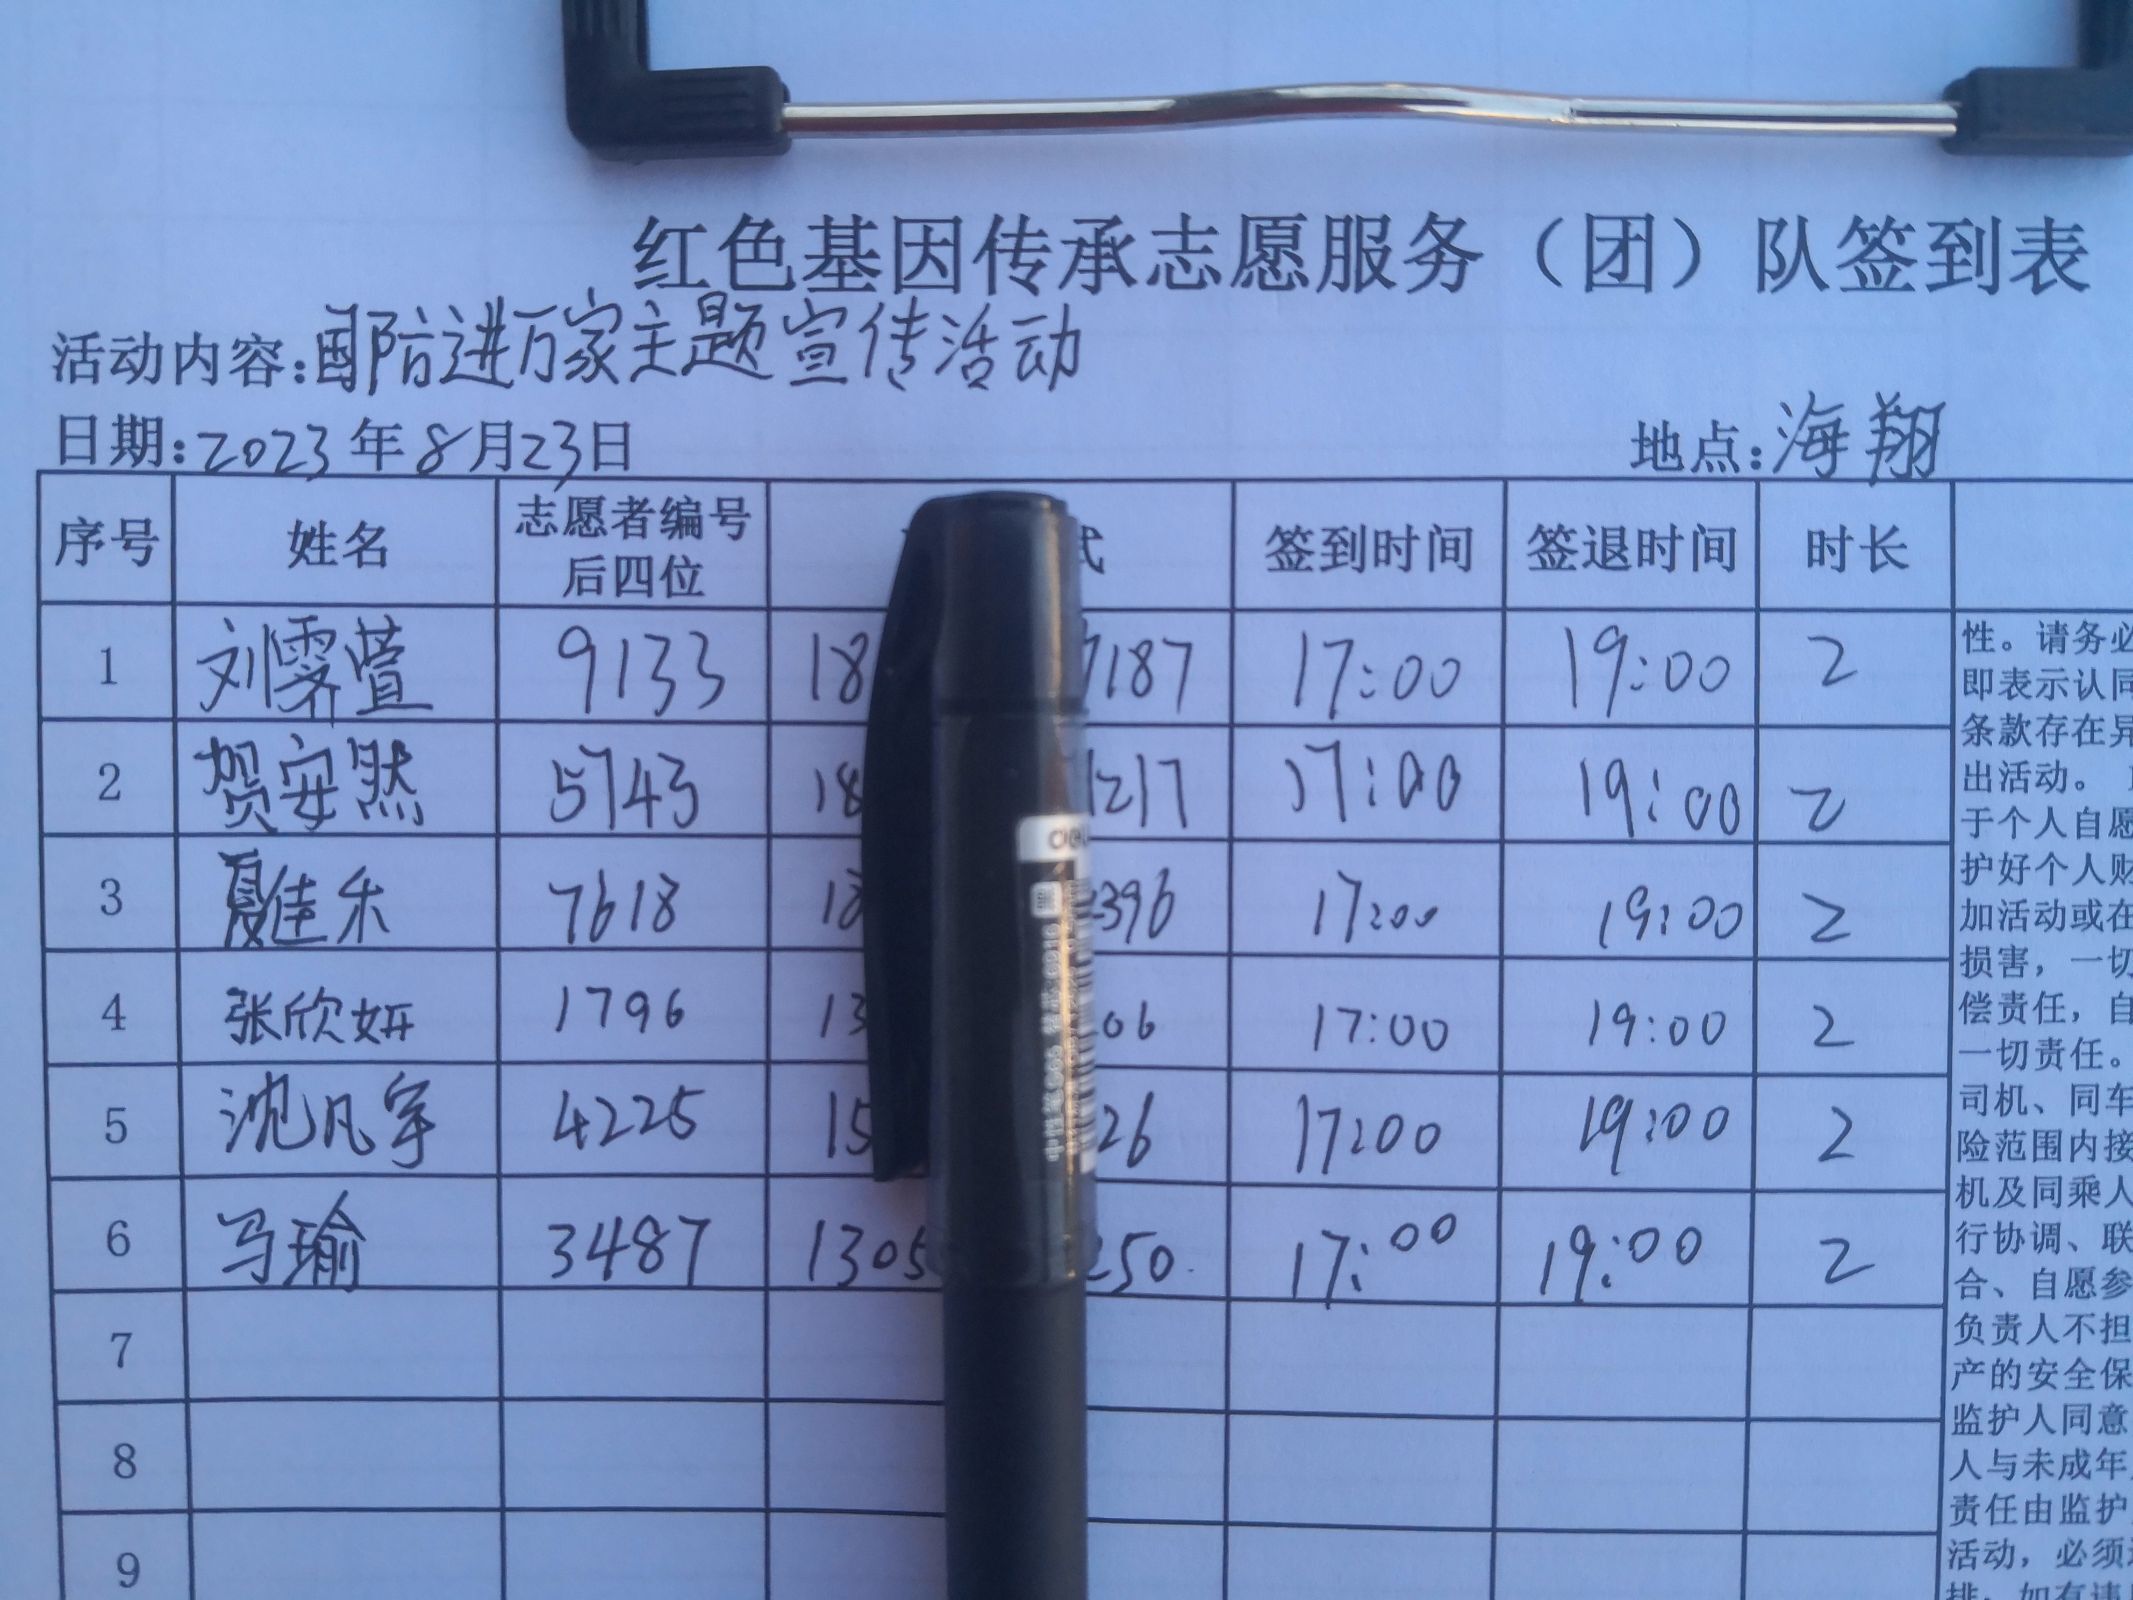 红色基因传承志愿服务（团）队签到表
活动内容:国防进万家主题宣传活动
日期:2023年8月23日 地点:海翔
序号 姓名 志愿者编号后四位 式 签到时间 签退时间 时长
1 刘霁萱 9133 18 7187 17:00 19:00 2
2 贺安然 5743 18 1217 17:00 19:00 2
3 夏佳禾 7618 18 2396 17:00 19:00 2
4 张欣妍 1796 13 06 17:00 19:00 2
5 沈凡宇 4225 15 26 17:00 19:00 2
6 马瑜 3487 1305 250 17:00 19:00 2
7
8
9
性。请务必
即表示认同
条款存在异
出活动。
于个人自愿
护好个人财
加活动或在
损害，一切
偿责任，自
一切责任。
司机、同车
险范围内接
机及同乘人
行协调、联
合、自愿参
负责人不担
产的安全保
监护人同意
人与未成年
责任由监护
活动，必须